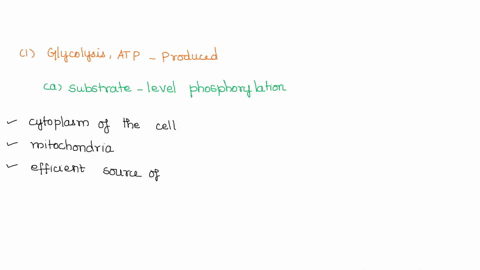 (1) Glycolysis, ATP - Produced
(a) substrate - level phosphorylation
✓ cytoplasm of the cell
✓ mitochondria
✓ efficient source of